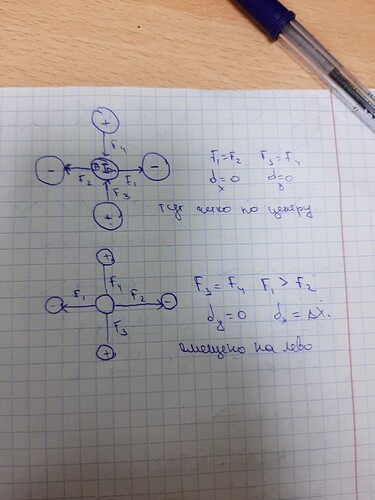 +
F₄
- -
F₂ F₁
F₃
+
F₁=F₂ F₃=F₄
d=0 d=0
x y
тут четко по центру
+
F₄
- F₁ F₂ -
F₃
+
F₃ = F₄ F₁ > F₂
d_y=0 d_x = Δx.
смещено на лево